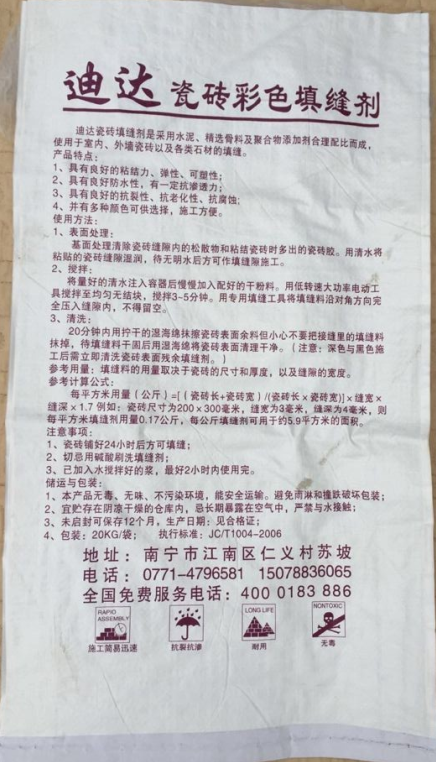 迪达 瓷砖彩色填缝剂
迪达瓷砖填缝剂是采用水泥、精选骨料及聚合物添加剂合理配比而成，
使用于室内、外墙瓷砖以及各类石材的填缝。
产品特点：
1、具有良好的粘结力、弹性、可塑性；
2、具有良好防水性，有一定抗渗透力；
3、具有良好的抗裂性、抗老化性、抗腐蚀；
4、并有多种颜色可供选择，施工方便。
使用方法：
1、表面处理：
基面处理清除瓷砖缝隙内的松散物和粘结瓷砖时多出的瓷砖胶。用清水将
粘贴的瓷砖缝隙湿润，待无明水后方可作填缝隙施工。
2、搅拌：
将量好的清水注入容器后慢慢加入配好的干粉料。用低转速大功率电动工
具搅拌至均匀无结块，搅拌3~5分钟。用专用填缝工具将填缝料沿对角方向完
全压入缝隙内，不得留空。
3、清洗：
20分钟内用拧干的湿海绵抹擦瓷砖表面余料但小心不要把接缝里的填缝料
抹掉，待填缝料干固后用湿海绵将瓷砖表面清理干净。（注意：深色与黑色施
工后需立即清洗瓷砖表面残余填缝剂。）
参考用量：填缝料的用量取决于瓷砖的尺寸和厚度，以及缝隙的宽度。
参考计算公式：
每平方米用量（公斤）=[（瓷砖长+瓷砖宽）/(瓷砖长×瓷砖宽)]×缝宽×
缝深×1.7 例如：瓷砖尺寸为200×300毫米，缝宽为3毫米，缝深为4毫米，则
每平方米填缝剂用量0.17公斤，每公斤填缝剂可用于约5.9平方米的面积。
注意事项：
1、瓷砖铺好24小时后方可填缝；
2、切忌用碱酸刷洗填缝剂；
3、已加入水搅拌好的浆，最好2小时内使用完。
储运与包装：
1、本产品无毒、无味、不污染环境，能安全运输。避免雨淋和撞跌破坏包装；
2、宜贮存在阴凉干燥的仓库内，忌长期暴露在空气中，严禁与水接触；
3、未启封可保存12个月，生产日期：见合格证；
4、包装：20KG/袋； 执行标准：JC/T1004-2006
地址：南宁市江南区仁义村苏坡
电话：0771-4796581 15078836065
全国免费服务电话：400 0183 886
RAPID ASSEMBLY LONG LIFE NONTOXIC
施工简易迅速 抗裂抗渗 耐用 无毒